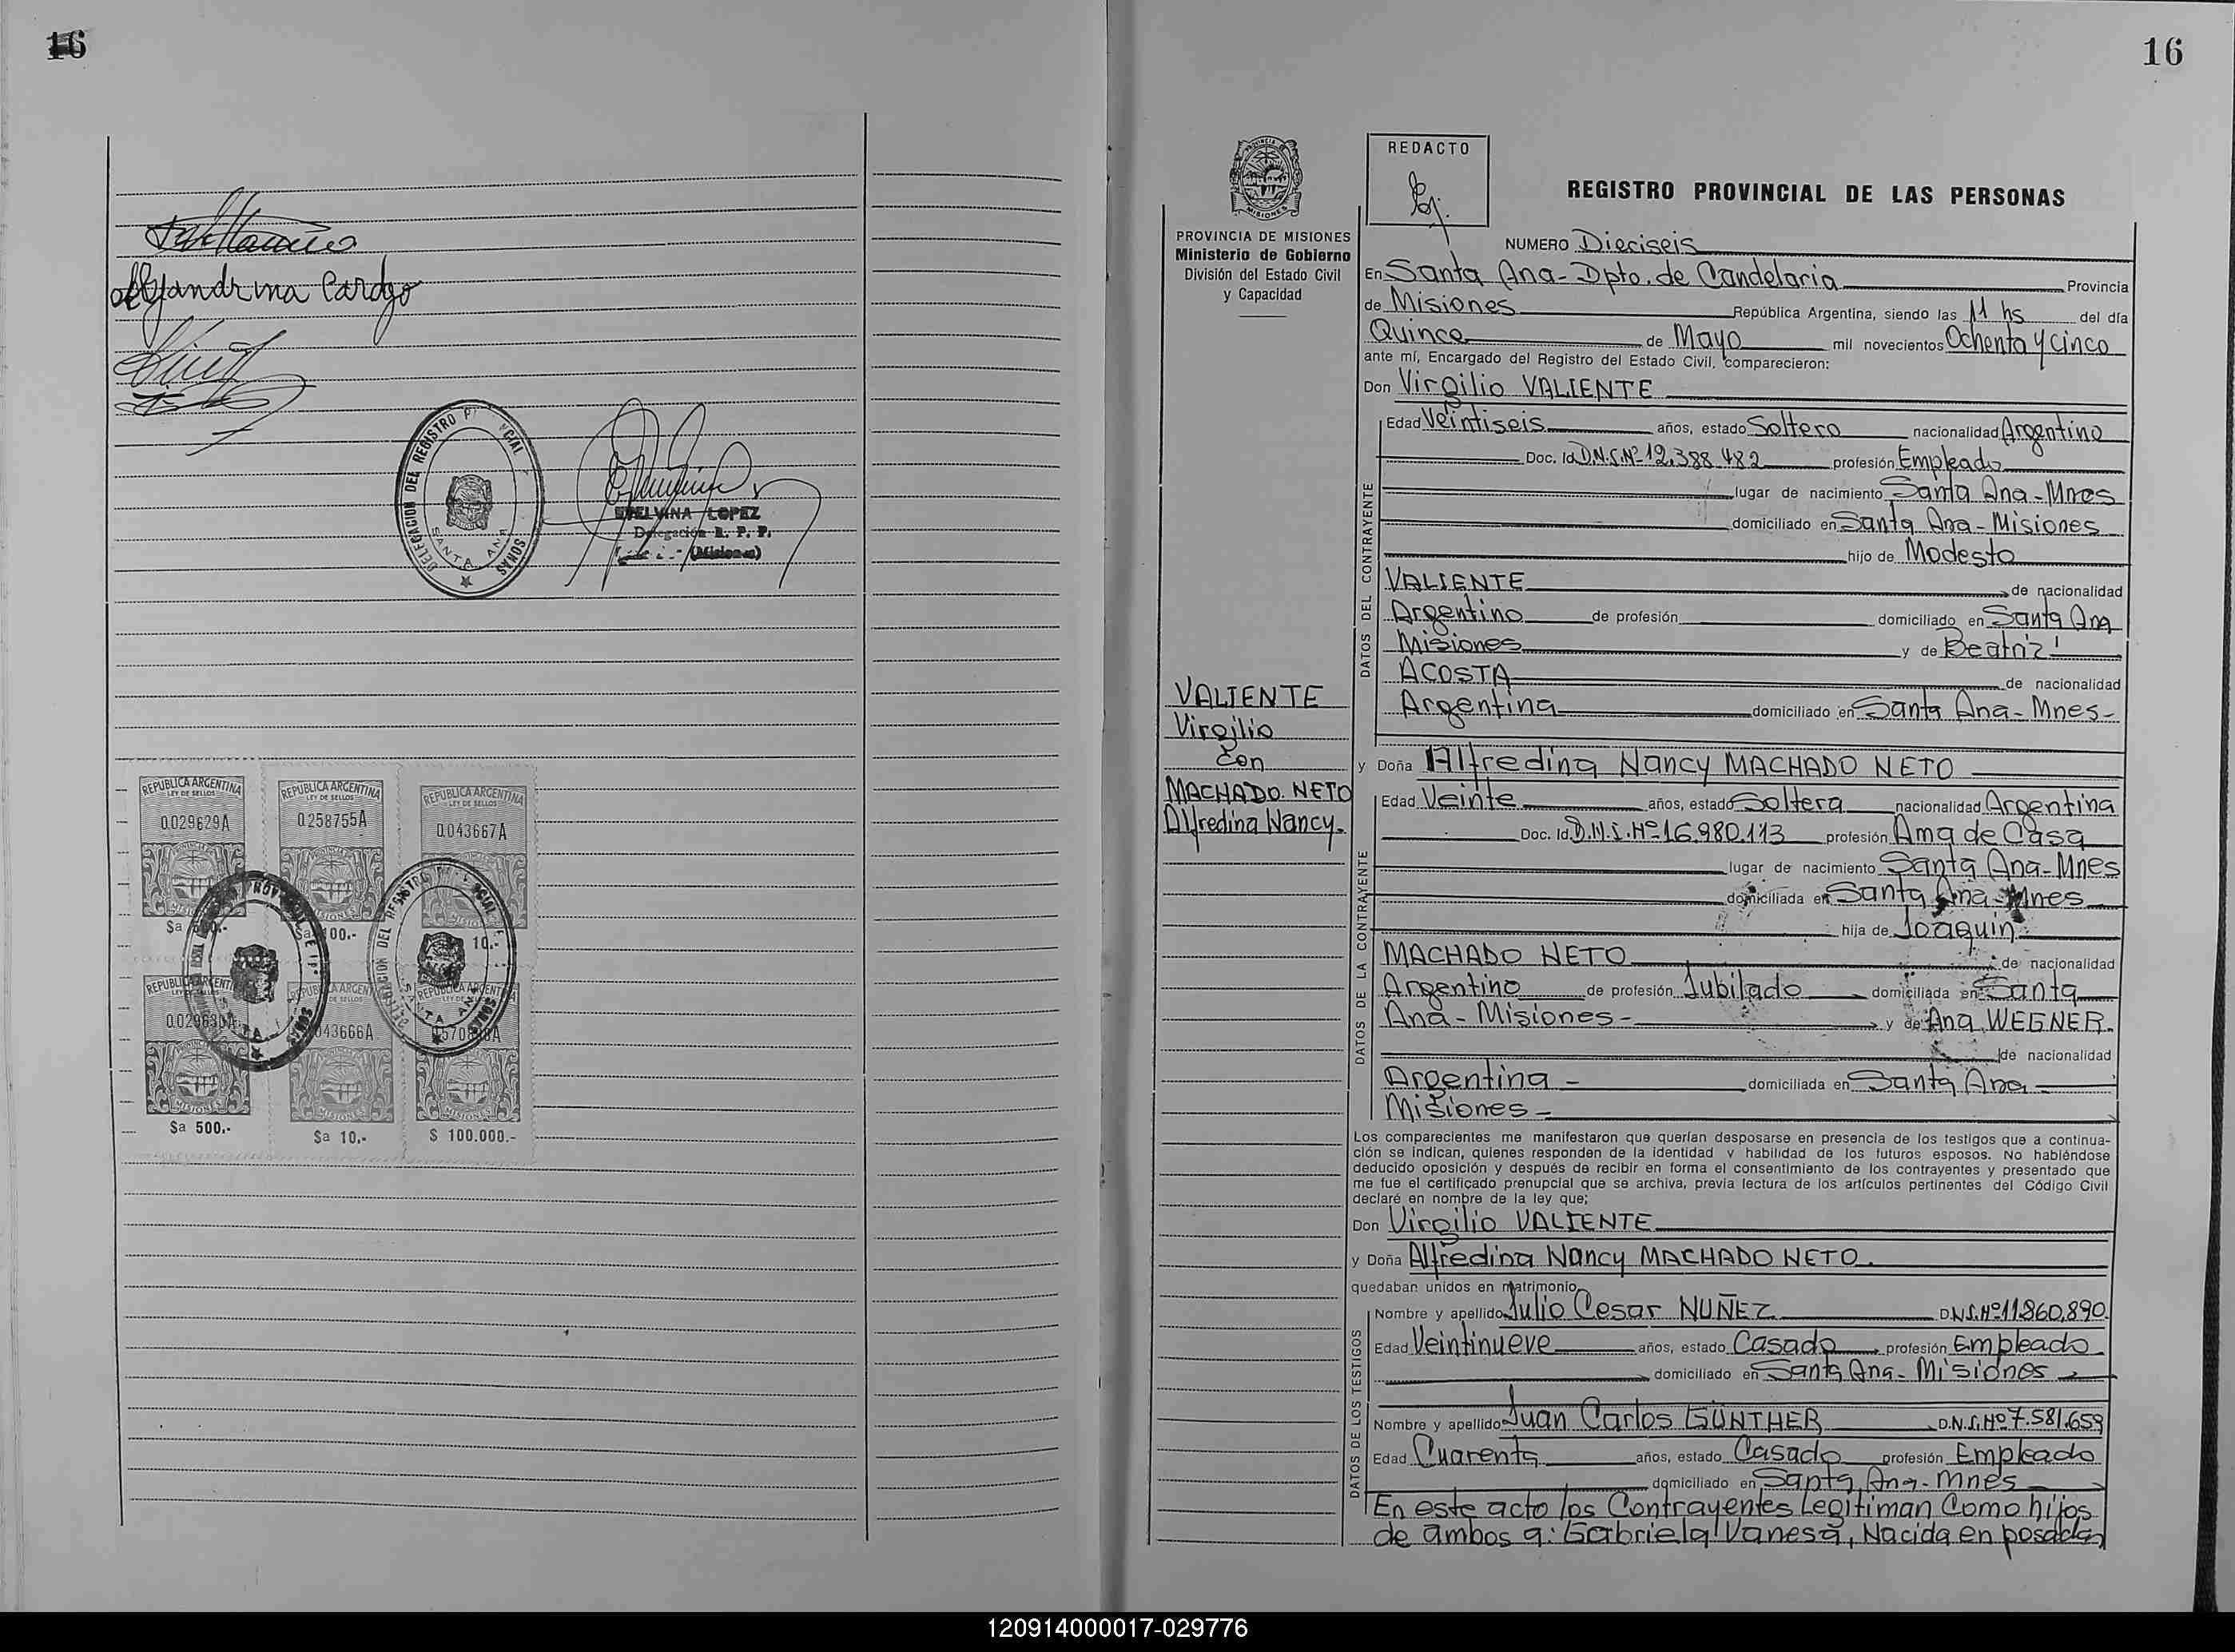 16
Alejandrina Cardozo
DELEGACION DEL REGISTRO PROVINCIAL
SANTA ANA
EVELVINA LOPEZ
Delegación R. P. P.
(Misiones)
REPUBLICA ARGENTINA
LEY DE SELLOS
0.029629A
MISIONES
REPUBLICA ARGENTINA
LEY DE SELLOS
0.258755A
MISIONES
$a 100.-
REPUBLICA ARGENTINA
LEY DE SELLOS
0.043667A
10.-
REPUBLICA ARGENTINA
MISIONES
$a 500.-
REPUBLICA ARGENTINA
043666A
MISIONES
$a 10.-
REPUBLICA ARGENTINA
MISIONES
$ 100.000.-
16
PROVINCIA DE MISIONES
Ministerio de Gobierno
División del Estado Civil
y Capacidad
VALIENTE
Virgilio
con
MACHADO NETO
Alfredina Nancy.
REDACTO
REGISTRO PROVINCIAL DE LAS PERSONAS
NUMERO Dieciseis
En Santa Ana - Dpto. de Candelaria Provincia
de Misiones República Argentina, siendo las 11 hs del día
Quince de Mayo mil novecientos Ochenta y cinco
ante mí, Encargado del Registro del Estado Civil, comparecieron:
Don Virgilio VALIENTE
DATOS DEL CONTRAYENTE
Edad Veintiseis años, estado Soltero nacionalidad Argentino
Doc. Id D.N.I. Nº 12.388.482 profesión Empleado
lugar de nacimiento Santa Ana - Mnes
domiciliado en Santa Ana - Misiones
hijo de Modesto
VALIENTE de nacionalidad
Argentino de profesión domiciliado en Santa Ana
Misiones y de Beatriz
ACOSTA de nacionalidad
Argentina domiciliado en Santa Ana - Mnes -
y Doña Alfredina Nancy MACHADO NETO
DATOS DE LA CONTRAYENTE
Edad Veinte años, estado Soltera nacionalidad Argentina
Doc. Id. D.N.I. Nº 16.980.113 profesión Ama de Casa
lugar de nacimiento Santa Ana - Mnes
domiciliada en Santa Ana - Mnes
hija de Joaquin
MACHADO NETO de nacionalidad
Argentino de profesión Jubilado domiciliada en Santa
Ana - Misiones - y de Ana WEGNER.
de nacionalidad
Argentina - domiciliada en Santa Ana
Misiones -
Los comparecientes me manifestaron que querían desposarse en presencia de los testigos que a continua-
ción se indican, quienes responden de la identidad y habilidad de los futuros esposos. No habiéndose
deducido oposición y después de recibir en forma el consentimiento de los contrayentes y presentado que
me fue el certificado prenupcial que se archiva, previa lectura de los artículos pertinentes del Código Civil
declaré en nombre de la ley que;
Don Virgilio VALIENTE
y Doña Alfredina Nancy MACHADO NETO.
quedaban unidos en matrimonio
DATOS DE LOS TESTIGOS
Nombre y apellido Julio Cesar NUÑEZ D.N.I. Nº 11.860.890
Edad Veintinueve años, estado Casado profesión Empleado
domiciliado en Santa Ana - Misiones
Nombre y apellido Juan Carlos GÜNTHER D.N.I. Nº 7.581.659
Edad Cuarenta años, estado Casado profesión Empleado
domiciliado en Santa Ana - Mnes
En este acto los Contrayentes Legitiman Como hijos
de ambos a: Gabriela Vanesa, Nacida en posadas
120914000017-029776